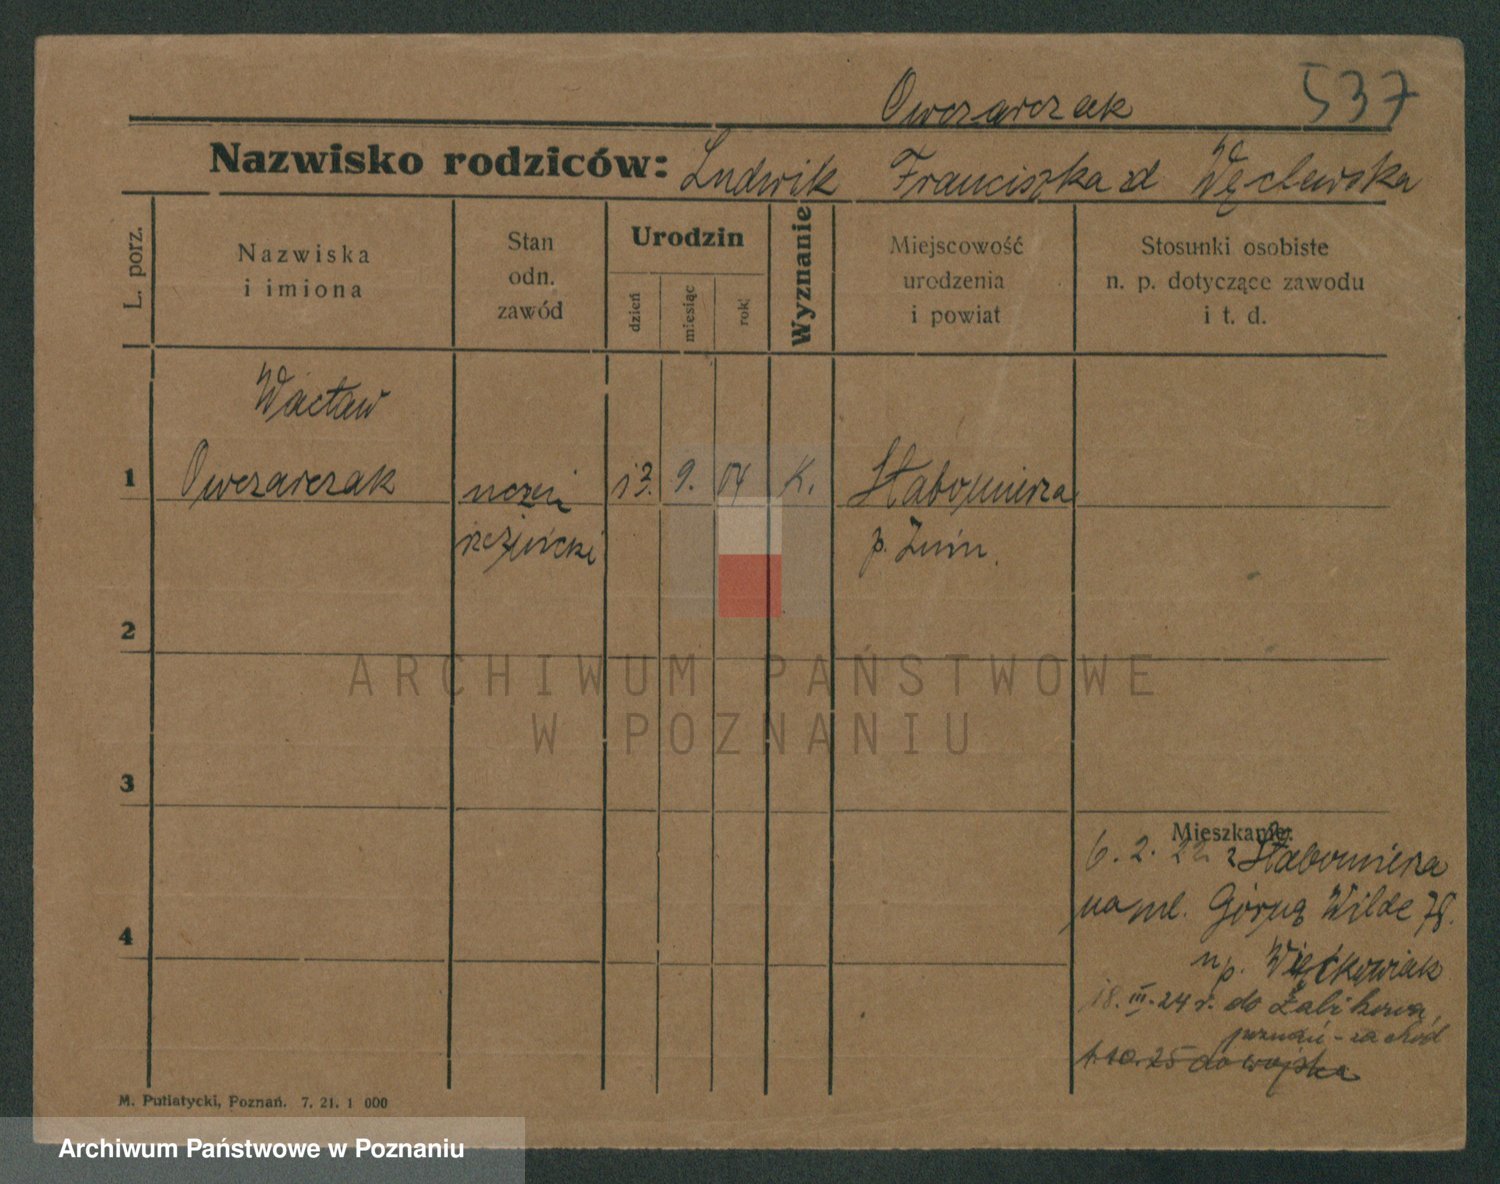 537
Owczarczak
Nazwisko rodziców: Ludwik Franciszka d Węclewska
L. porz.
Nazwiska
i imiona
Stan
odn.
zawód
Urodzin
dzień
miesiąc
rok
Wyznanie
Miejscowość
urodzenia
i powiat
Stosunki osobiste
n. p. dotyczące zawodu
i t. d.
Wacław
1 Owczarczak uczeń 13. 9. 04 K. Słabomierza
rzeźnicki p. Żnin.
2
ARCHIWUM PAŃSTWOWE
W POZNANIU
3
Mieszkanie:
6. 2. 22 z Słabomierza
na ul. Górną Wilde 78.
4
u p. Więckowiak
18. III. 24 r. do Żabikowa,
poznań - zachód
1.10.25 do wojska
M. Putiatycki, Poznań. 7. 21. 1 000
Archiwum Państwowe w Poznaniu